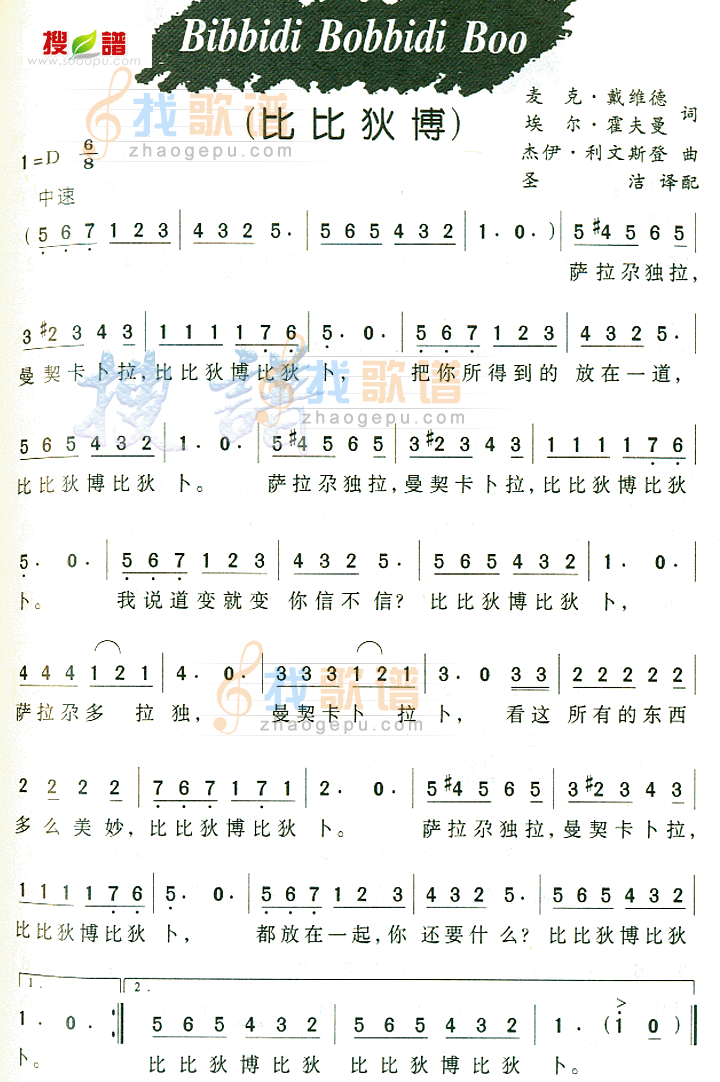 搜谱
www.sooopu.com
Bibbidi Bobbidi Boo
找歌谱
zhaogepu.com
(比比狄博)
麦克·戴维德
埃尔·霍夫曼 词
杰伊·利文斯登 曲
圣洁 译配
1=D 6/8
中速
(5 6 7 1 2 3 | 4 3 2 5. | 5 6 5 4 3 2 | 1. 0.) | 5 #4 5 6 5
萨拉尕独拉,
3 #2 3 4 3 | 1 1 1 1 7 6 | 5. 0. | 5 6 7 1 2 3 | 4 3 2 5.
曼契卡卜拉,比比狄博比狄 卜, 把你所得到的 放在一道,
搜谱
找歌谱
zhaogepu.com
5 6 5 4 3 2 | 1. 0. | 5 #4 5 6 5 | 3 #2 3 4 3 | 1 1 1 1 7 6
比比狄博比狄 卜。 萨拉尕独拉,曼契卡卜拉,比比狄博比狄
5. 0. | 5 6 7 1 2 3 | 4 3 2 5. | 5 6 5 4 3 2 | 1. 0.
卜。 我说道变就变 你信不信? 比比狄博比狄 卜,
4 4 4 1 2 1 | 4. 0. | 3 3 3 1 2 1 | 3. 0 3 3 | 2 2 2 2 2
萨拉尕多 拉独, 曼契卡卜 拉卜, 看这 所有的东西
找歌谱
zhaogepu.com
2 2 2 2 | 7 6 7 1 7 1 | 2. 0. | 5 #4 5 6 5 | 3 #2 3 4 3
多么美妙,比比狄博比狄 卜。 萨拉尕独拉,曼契卡卜拉,
1 1 1 1 7 6 | 5. 0. | 5 6 7 1 2 3 | 4 3 2 5. | 5 6 5 4 3 2
比比狄博比狄 卜, 都放在一起,你 还要什么? 比比狄博比狄
1. 2.
1. 0. :| 5 6 5 4 3 2 | 5 6 5 4 3 2 | 1. (i 0) ||
卜。 比比狄博比狄 比比狄博比狄 卜。